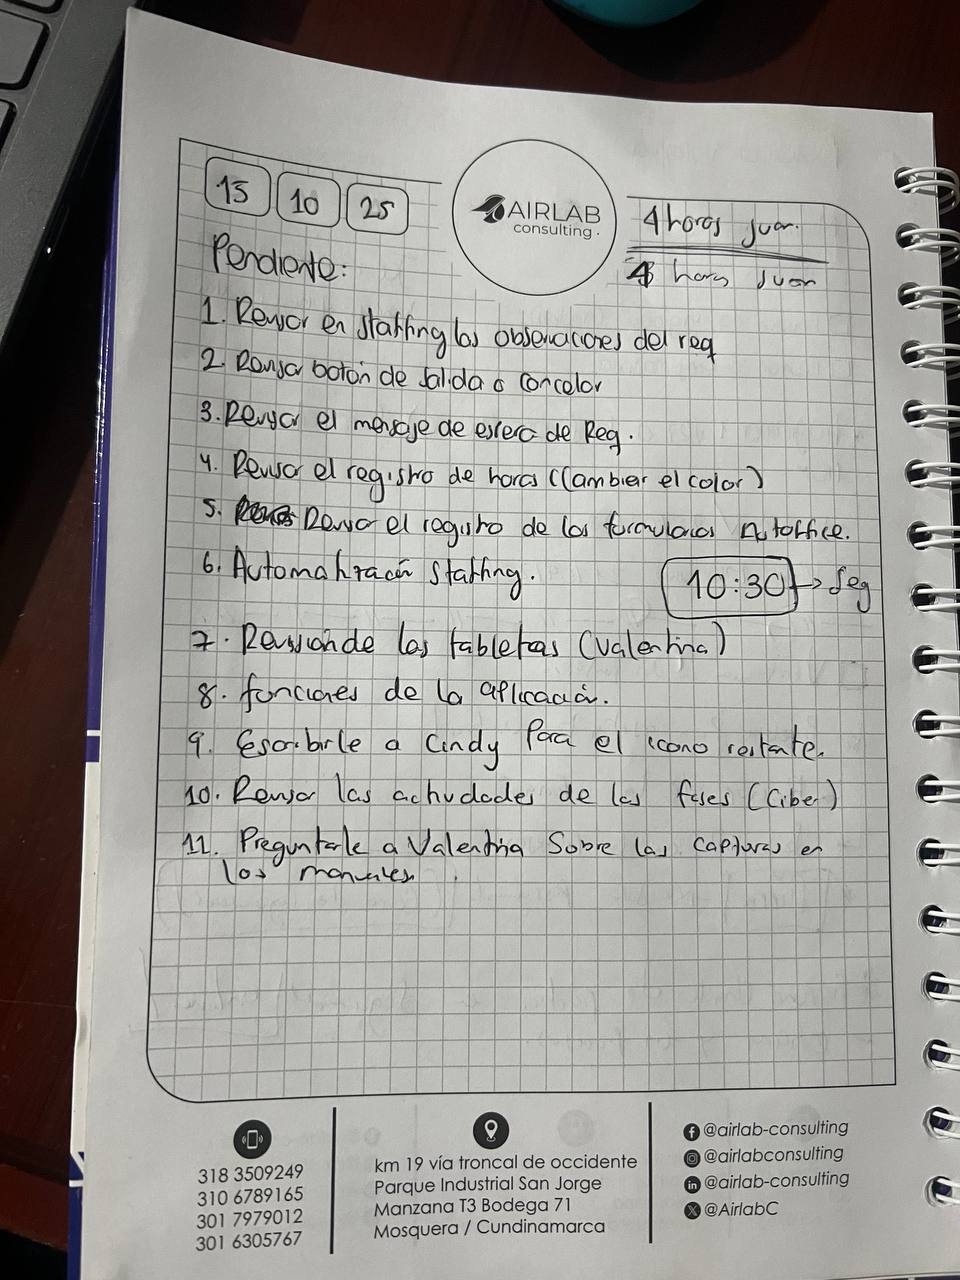 15 10 25
AIRLAB
consulting.
4 horas Juan.
4 horas Juan
Pendiente:
1. Revisar en staffing las observaciones del req
2. Revisar botón de salida o cancelar
3. Revisar el mensaje de espera de Req.
4. Revisar el registro de horas (Cambiar el color)
5. Revisar el registro de los formularios
6. Automatización staffing.
10:30 → Seg
7. Revisión de las tabletas (Valentina)
8. funciones de la aplicación.
9. Escribirle a Cindy Para el icono restante.
10. Revisar las actividades de las fases (Ciber)
11. Preguntarle a Valentina Sobre las capturas en
los manuales.
318 3509249
310 6789165
301 7979012
301 6305767
km 19 vía troncal de occidente
Parque Industrial San Jorge
Manzana T3 Bodega 71
Mosquera / Cundinamarca
@airlab-consulting
@airlabconsulting
@airlab-consulting
@AirlabC